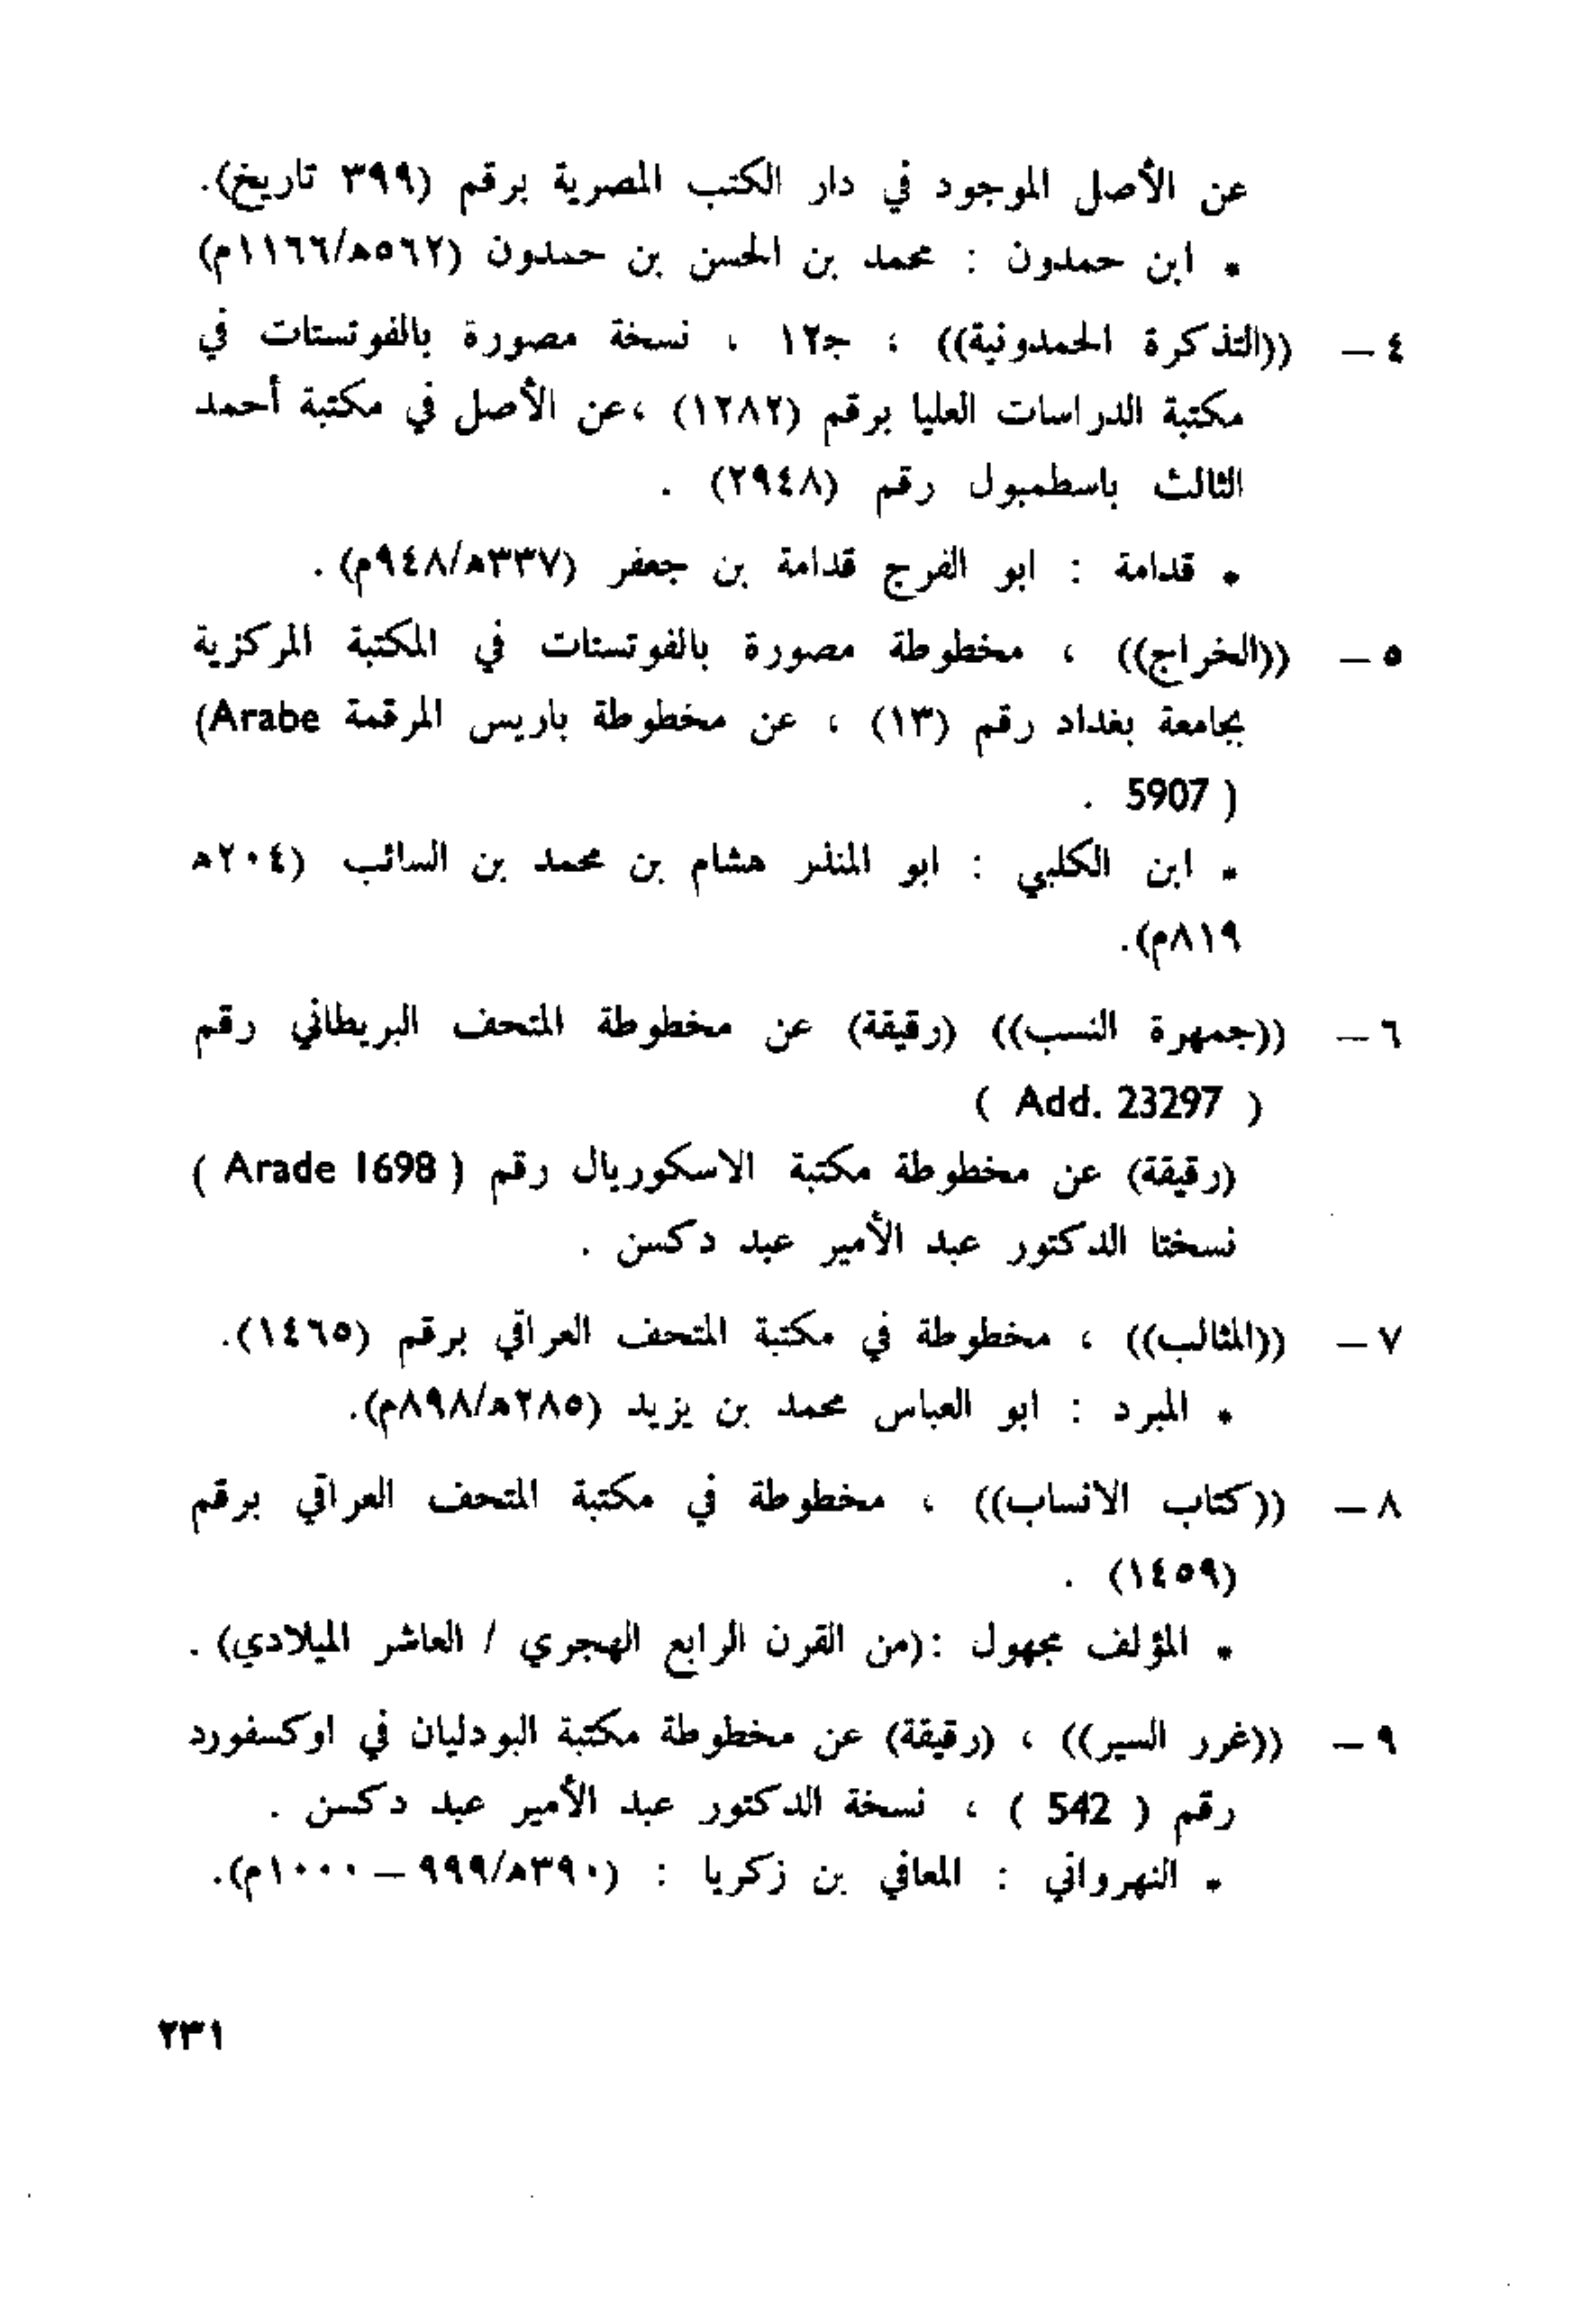 عن الأصل الموجود في دار الكتب المصرية برقم (٣٩٩ تاريخ).
* ابن حمدون : محمد بن الحسن بن حمدون (٥٦٢ه/١١٦٦م)
٤ – ((التذكرة الحمدونية)) ، ج١٢ ، نسخة مصورة بالفوتستات في
مكتبة الدراسات العليا برقم (١٢٨٢) ،عن الأصل في مكتبة أحمد
الثالث باسطمبول رقم (٢٩٤٨) .
* قدامة : ابو الفرج قدامة بن جعفر (٣٣٧ه/٩٤٨م) .
٥ – ((الخراج)) ، مخطوطة مصورة بالفوتستات في المكتبة المركزية
بجامعة بغداد رقم (١٣) ، عن مخطوطة باريس المرقمة (Arabe
( 5907 .
* ابن الكلبي : ابو المنذر هشام بن محمد بن السائب (٢٠٤ه
٨١٩م).
٦ – ((جمهرة النسب)) (رقيقة) عن مخطوطة المتحف البريطاني رقم
( Add. 23297 )
(رقيقة) عن مخطوطة مكتبة الاسكوريال رقم ( Arade 1698 )
نسختا الدكتور عبد الأمير عبد دكسن .
٧ – ((المثالب)) ، مخطوطة في مكتبة المتحف العراقي برقم (١٤٦٥).
* المبرد : ابو العباس محمد بن يزيد (٢٨٥ه/٨٩٨م).
٨ – ((كتاب الانساب)) ، مخطوطة في مكتبة المتحف العراقي برقم
(١٤٥٩) .
* المؤلف مجهول :(من القرن الرابع الهجري / العاشر الميلادي) .
٩ – ((غرر السير)) ، (رقيقة) عن مخطوطة مكتبة البودليان في اوكسفورد
رقم ( 542 ) ، نسخة الدكتور عبد الأمير عبد دكسن .
* النهرواني : المعافي بن زكريا : (٣٩٠ه/٩٩٩ – ١٠٠٠م).
٢٣١